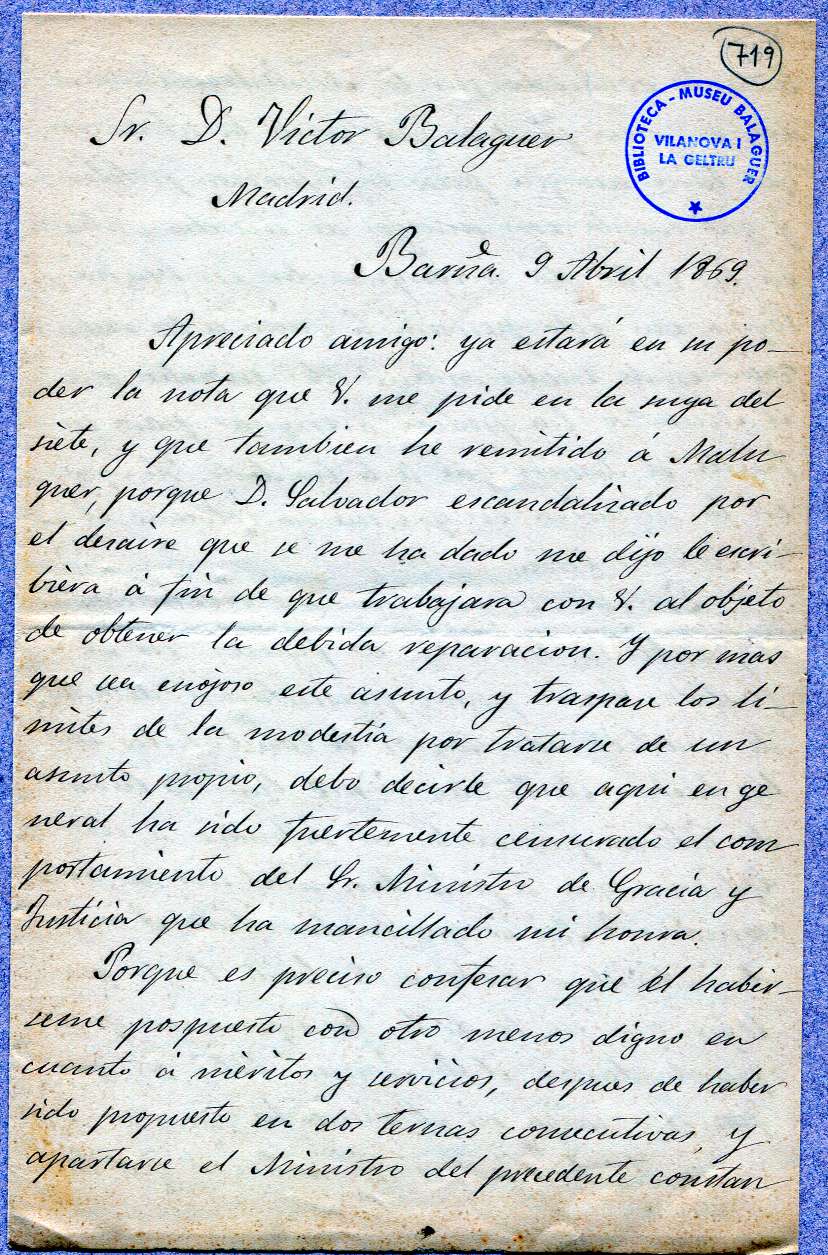 719
BIBLIOTECA - MUSEU BALAGUER
VILANOVA I
LA GELTRU
Sr. D. Victor Balaguer
Madrid.
Barña. 9 Abril 1869.
Apreciado amigo: ya estará en su po-
der la nota que V. me pide en la suya del
siete, y que tambien he remitido á Malu
quer, porque D. Salvador escandalizado por
el desaire que se me ha dado me dijo le escri-
biera á fin de que trabajara con V. al objeto
de obtener la debida reparacion. Y por mas
que sea enojoso este asunto, y traspase los lí-
mites de la modestia por tratarse de un
asunto propio, debo decirle que aqui en ge
neral ha sido fuertemente censurado el com
portamiento del Sr. Ministro de Gracia y
Justicia que ha mancillado mi honra.
Porque es preciso confesar que el haber-
seme pospuesto con otro menos digno en
cuanto á méritos y servicios, despues de haber
sido propuesto en dos ternas consecutivas, y
apartarse el Ministro del precedente constan